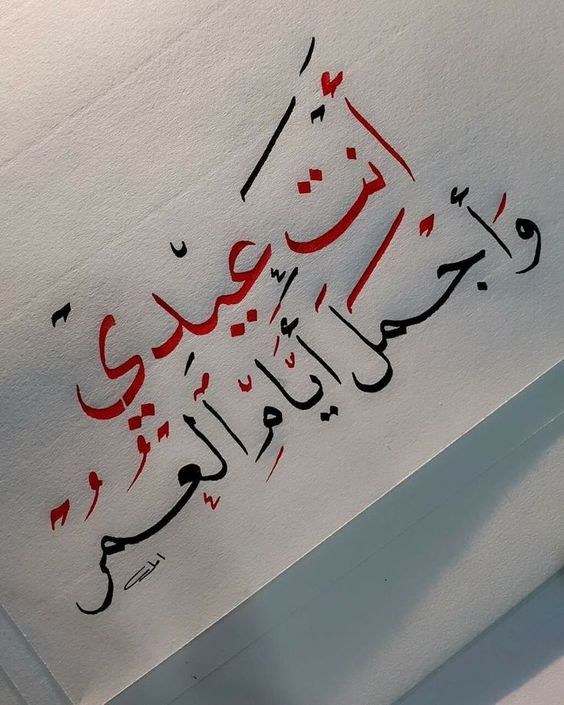 أنت عيدي
وَأجمل أيّامِ العمر